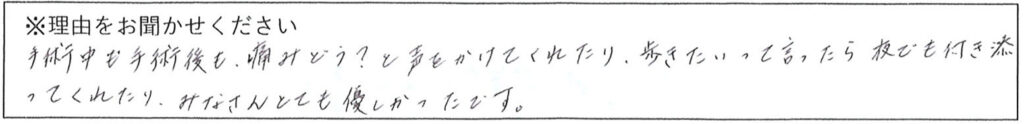 ※理由をお聞かせください
手術中も手術後も、痛みどう?と声をかけてくれたり、歩きたいって言ったら夜でも付き添
ってくれたり、みなさんとても優しかったです。